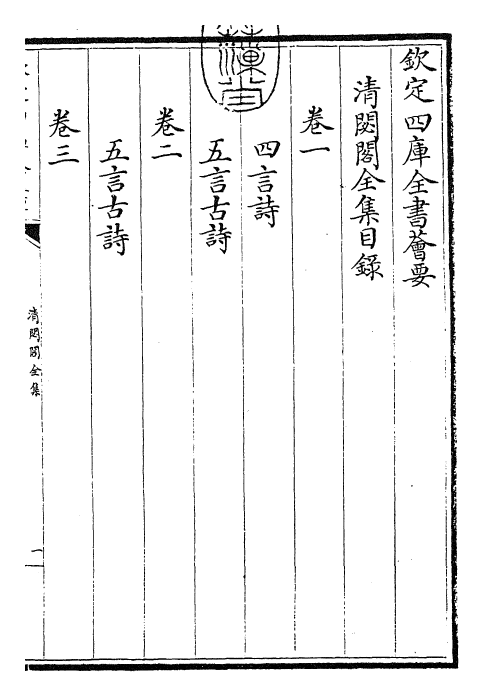 欽定四庫全書薈要
清閟閣全集目錄
卷一
四言詩
五言古詩
卷二
五言古詩
卷三
清閟閣全集
一